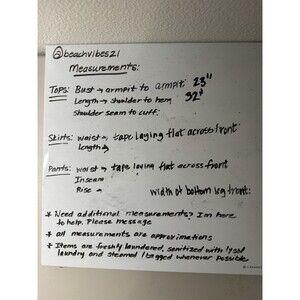 @beachvibes21
Measurements:
Tops: Bust → armpit to armpit: 23"
Length → shoulder to hem 32"
Shoulder seam to cuff:
Skirts: waist → tape laying flat across front
length →
Pants: waist → tape laying flat across front
Inseam
Rise → width of bottom leg front:
* Need additional measurements? Im here
to help. Please message
* all measurements are approximations
* Items are freshly laundered, sanitized with lysol
laundry and steamed / bagged whenever possible